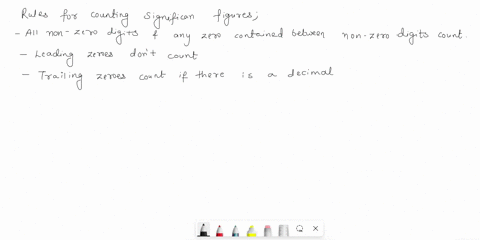 Rules for counting significan figures;
- All non-zero digits & any zero contained between non-zero digits count.
- Leading zeroes don't count
- Trailing zeroes count if there is a decimal